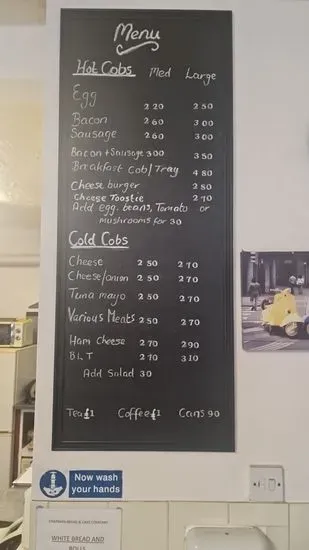 Menu
Hot Cobs Med Large
Egg 2 20 2 50
Bacon 2 60 3 00
Sausage 2 60 3 00
Bacon + Sausage 3 00 3 50
Breakfast Cob/Tray 4 80
Cheese burger 2 80
Cheese Toastie 2 70
Add egg, beans, Tomato or
mushrooms for 30
Cold Cobs
Cheese 2 50 2 70
Cheese/onion 2 50 2 70
Tuna mayo 2 50 2 70
Various Meats 2 50 2 70
Ham cheese 2 70 2 90
B.L.T 2 70 3 10
Add Salad 30
Tea £1 Coffee £1 Cans 90
Now wash
your hands
WHITE BREAD AND
ROLLS